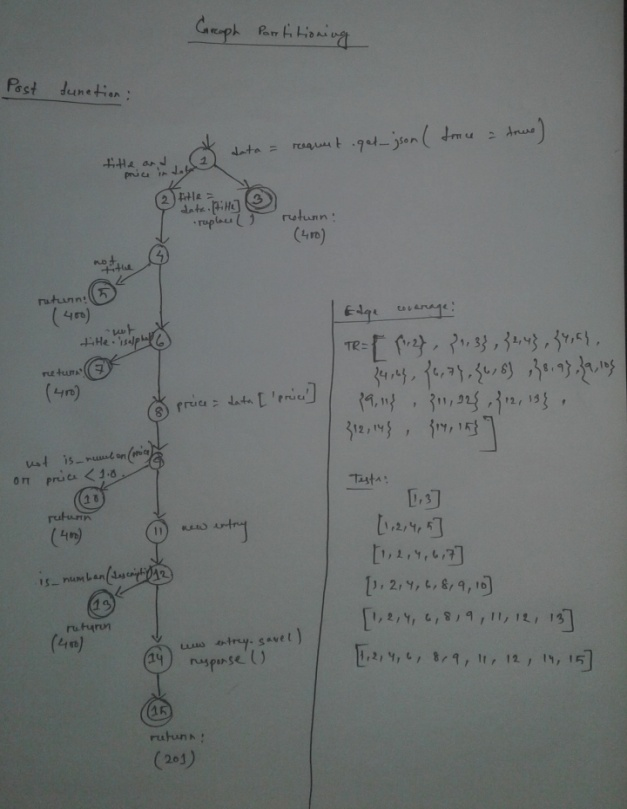 Graph Partitioning
Post function:
data = request.get_json(force = true)
title and
price in data
1
2
title =
data.[title]
.replace()
3
return:
(400)
4
not
title
5
return:
(400)
6
not
title.isalpha()
7
return:
(400)
8
price = data['price']
not is_number(price)
or price < 1.0.
9
10
return
(400)
11
new entry
is_number(description)
12
13
return
(400)
14
new entry.save()
response()
15
return:
(201)
Edge coverage:
TR = { {1,2}, {1,3}, {2,4}, {4,5},
{4,6}, {6,7}, {6,8}, {8,9}, {9,10}
{9,11} , {11,12}, {12,13} ,
{12,14} , {14,15} ]
Tests:
[1,3]
[1,2,4,5]
[1,2,4,6,7]
[1,2,4,6,8,9,10]
[1,2,4,6,8,9,11,12,13]
[1,2,4,6, 8,9,11,12,14,15]